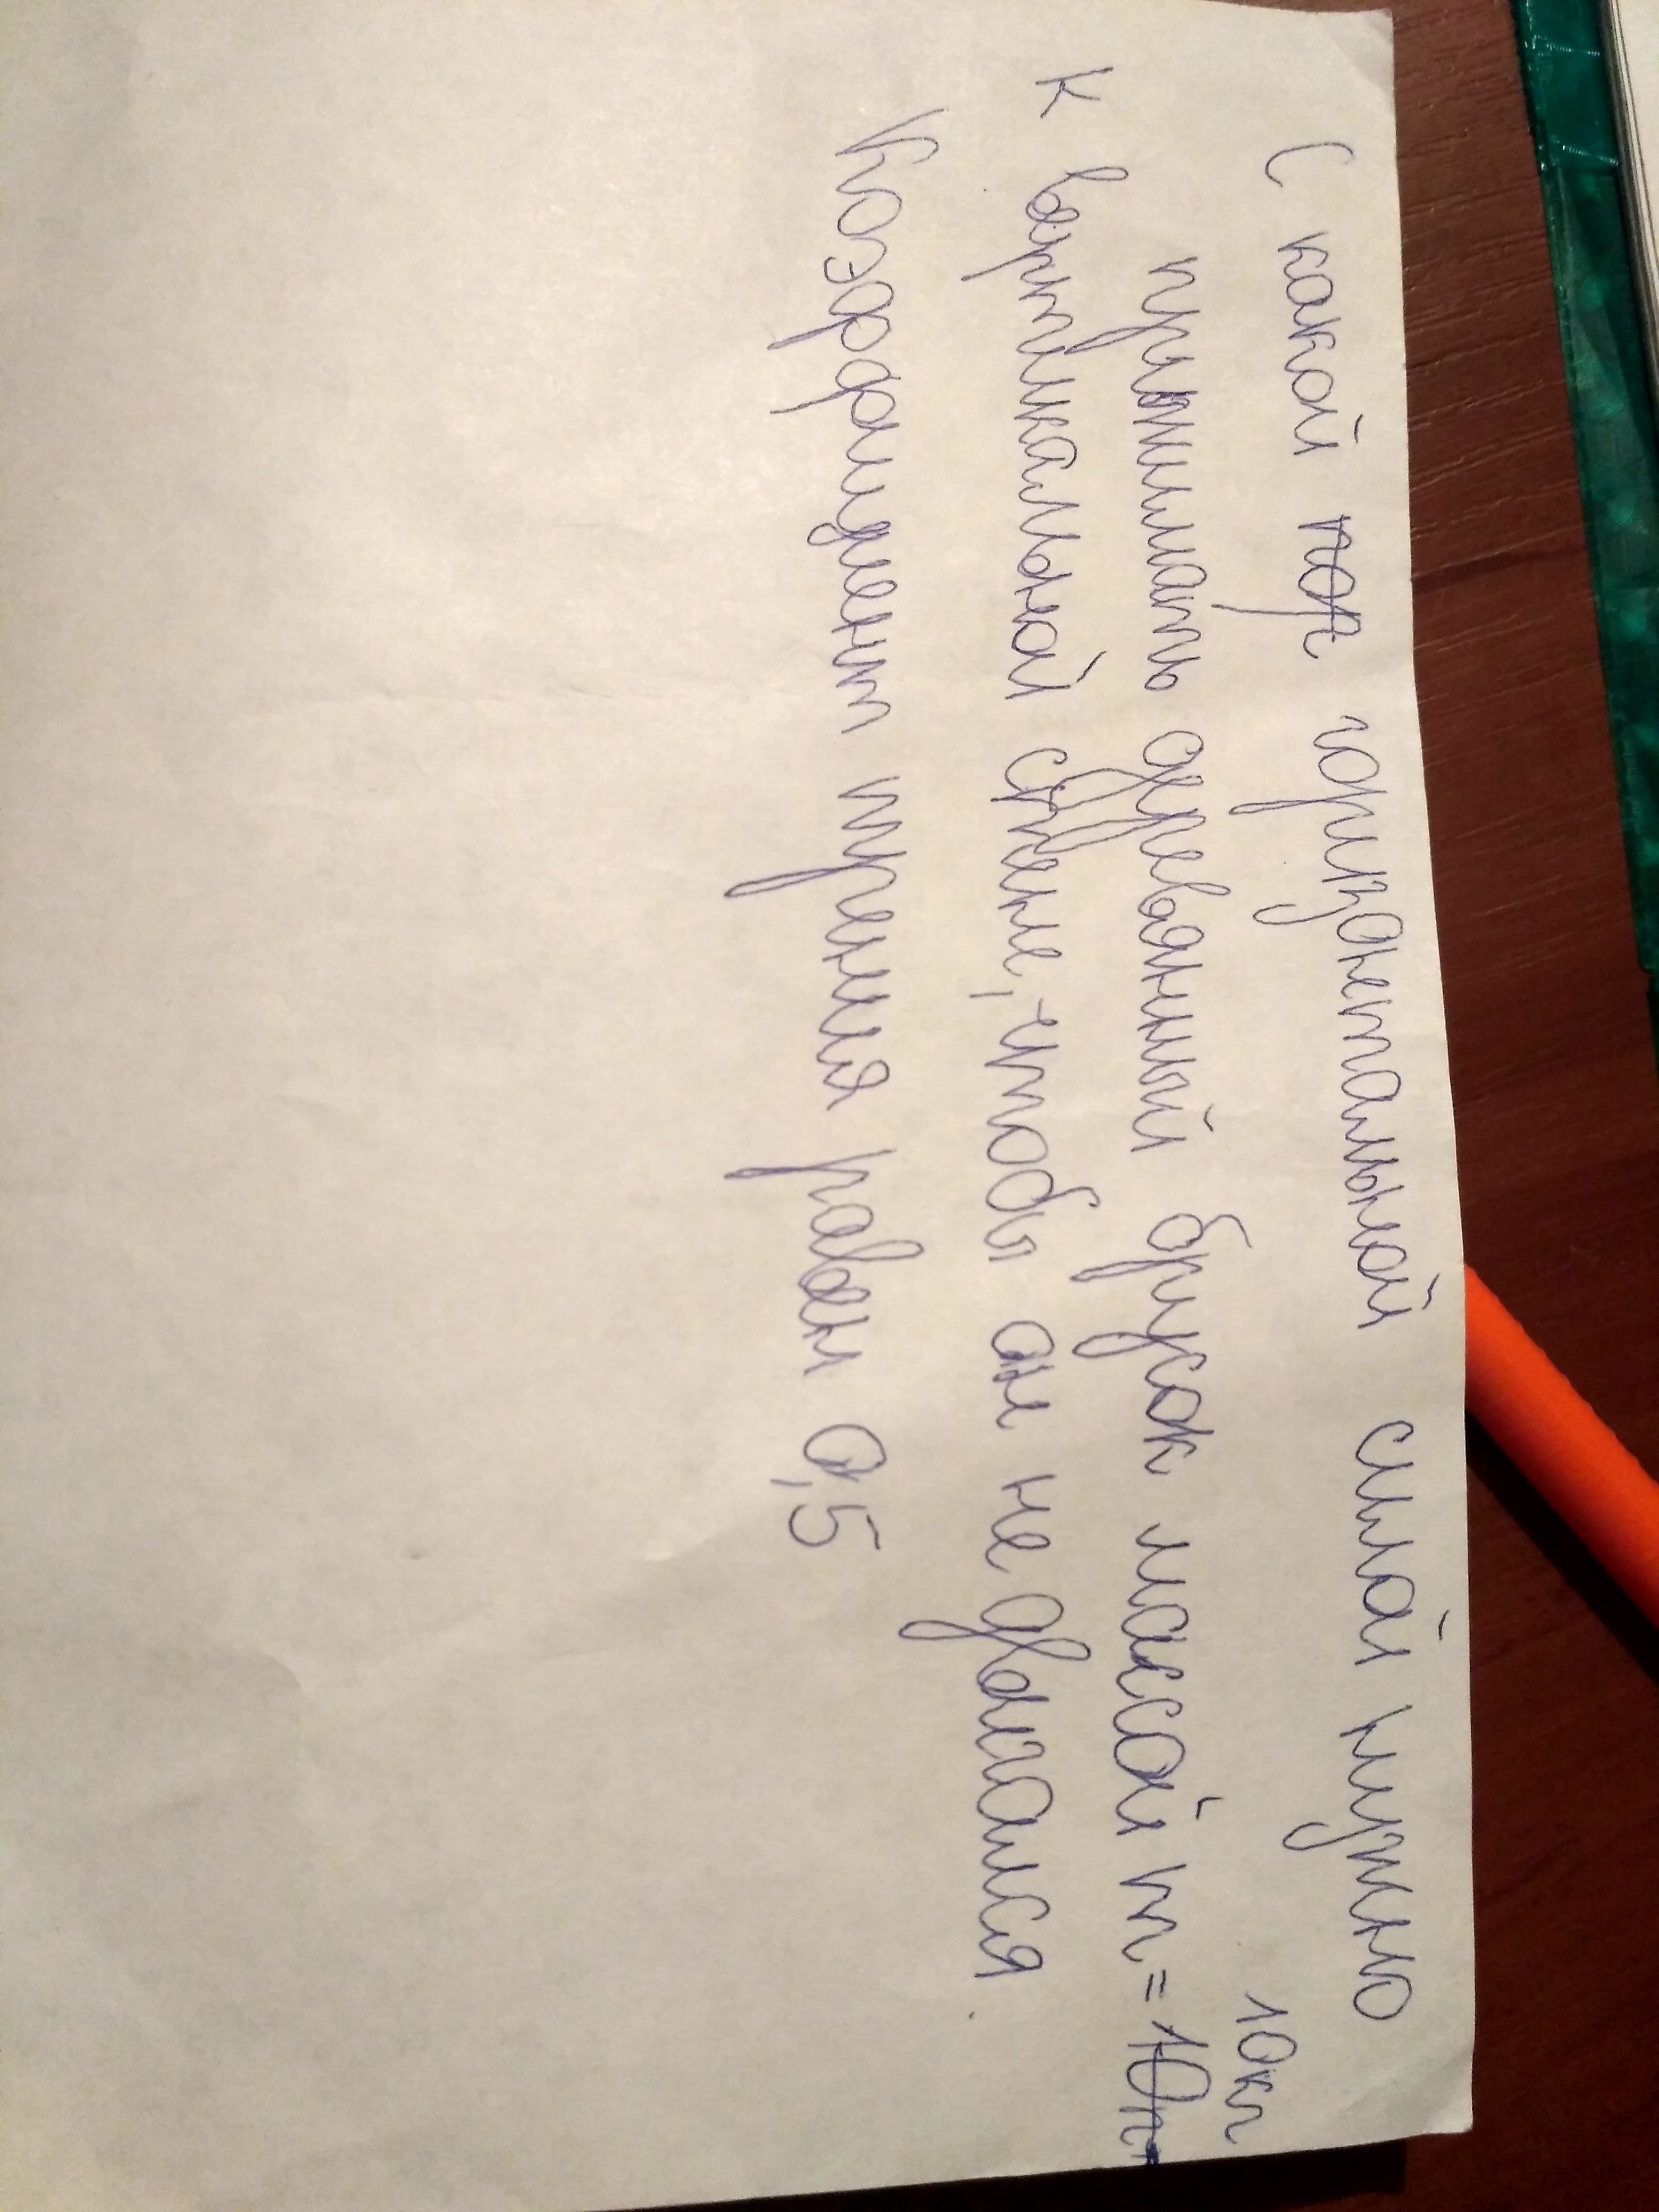 С какой гор горизонтальной силой нужно
прижимать деревянный брусок массой m = 10 кг
к вертикальной стене, чтобы он не двигался.
Коэффициент трения равен 0,5